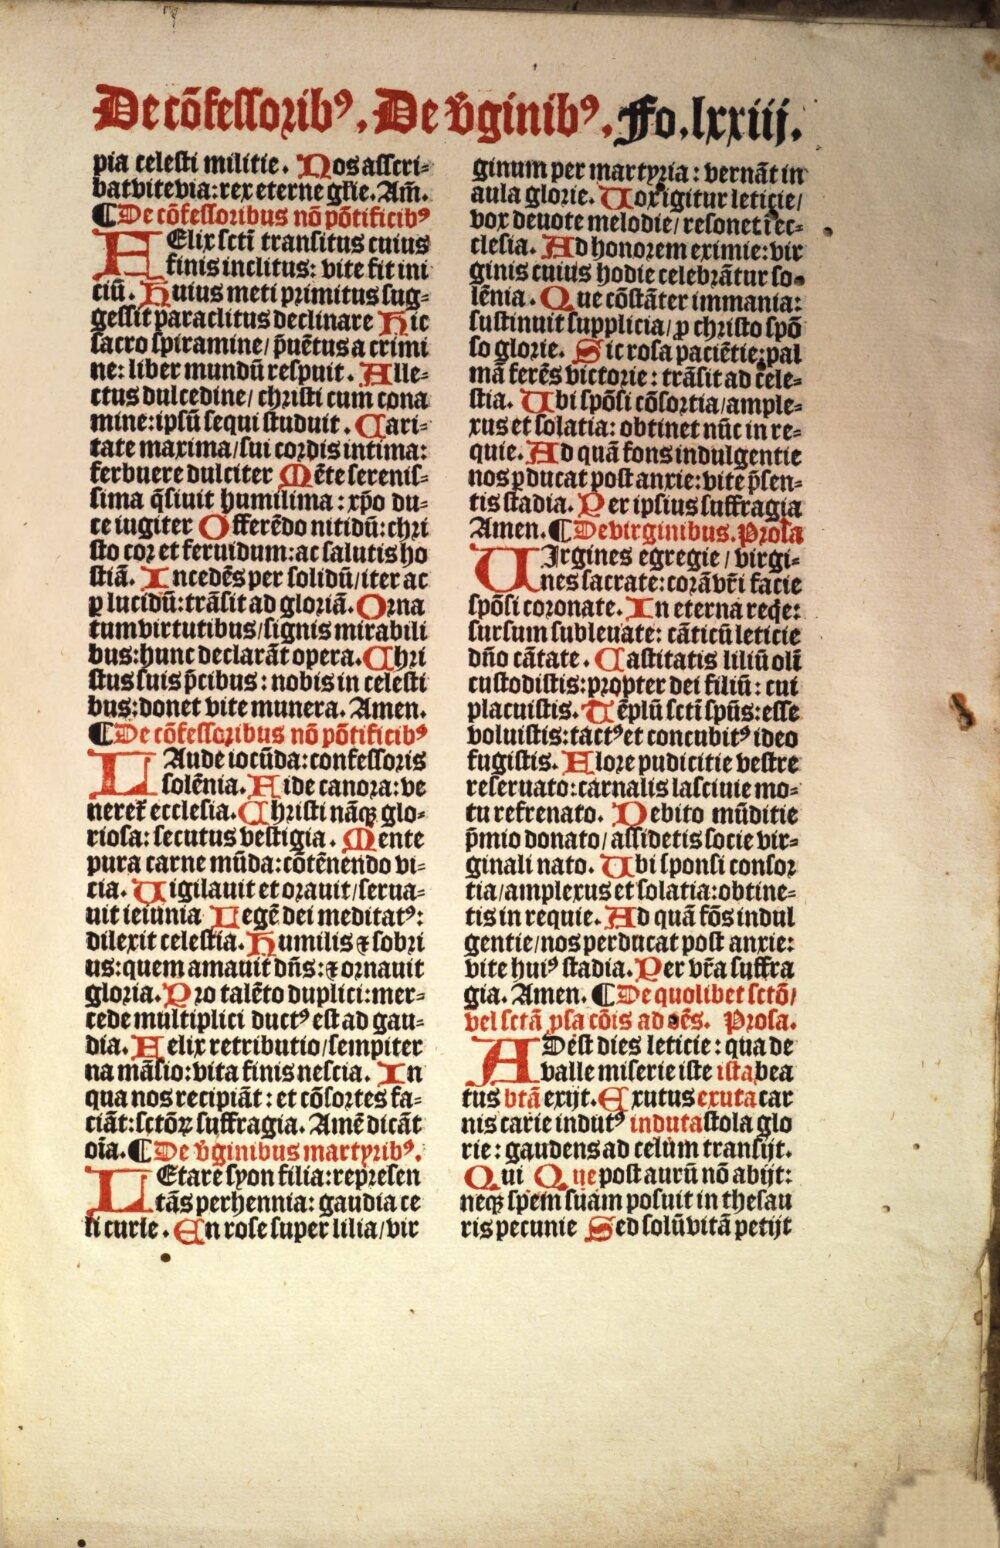 De cõfessorib⁹. De v̄ginib⁹. Fo. lxxiij.
pia celesti militie. Nos asscri-
bat vite via: rex eterne glīe. Am̄.
¶ De cõfessoribus nõ põtificib⁹
FElix scti transitus cuius
finis inclitus: vite fit ini
ciū. Huius meti primitus sug-
gessit paraclitus declinare Hic
sacro spiramine/ p̄uētus a crimi
ne: liber mundū respuit. Alle-
ctus dulcedine/ christi cum cona
mine: ipsū sequi studuit. Cari-
tate maxima/ sui cordis intima:
ferbuere dulciter Mēte serenis-
sima q̄siuit humilima: xp̄o du-
ce iugiter Offerēdo nitidū: chri
sto cor et feruidum: ac salutis ho
stiā. Incedēs per solidū/ iter ac
ꝑ lucidū: trāsit ad gloriā. Orna
tum virtutibus/ signis mirabili
bus: hunc declarāt opera. Chri
stus suis p̄cibus: nobis in celesti
bus: donet vite munera. Amen.
¶ De cõfessoribus nõ põtificib⁹
LAude iocūda: confessoris
solēnia. Fide canora: ve
neret̄ ecclesia. Christi nāqꝫ glo-
riosa: secutus vestigia. Mente
pura carne mūda: cõtēnendo vi-
cia. Vigilauit et orauit/ serua-
uit ieiunia Legē dei meditat⁹:
dilexit celestia. Humilis ⁊ sobri
us: quem amauit dn̄s: ⁊ ornauit
gloria. Pro talēto duplici: mer-
cede multiplici duct⁹ est ad gau-
dia. Felix retributio/ sempiter
na māsio: vita finis nescia. In
qua nos recipiāt: et cõsortes fa-
ciāt: sctõꝝ suffragia. Amē dicāt
oīa. ¶ De v̄ginibus martyrib⁹.
LEtare syon filia: represen
tās perhennia: gaudia ce
li curie. En rose super lilia/ vir
ginum per martyria: vernāt in
aula glorie. Vox igitur leticie/
vox deuote melodie/ resonet ī ec-
clesia. Ad honorem eximie: vir
ginis cuius hodie celebrātur so-
lēnia. Que cõstāter immania:
sustinuit supplicia/ ꝓ christo spõ
so glorie. Sic rosa paciētie: pal
mā ferēs victorie: trāsit ad cele-
stia. Vbi spõsi cõsortia/ ample-
xus et solatia: obtinet nūc in re-
quie. Ad quā fons indulgentie
nos ꝑducat post anxie: vite p̄sen-
tis stadia. Per ipsius suffragia
Amen. ¶ De virginibus. Prosa
VIrgines egregie/ virgi-
nes sacrate: corā vr̄i facie
spõsi coronate. In eterna reqͥe:
sursum subleuate: cāticū leticie
dn̄o cātate. Castitatis liliū olī
custodistis: propter dei filiū: cui
placuistis. Tēplū scti spūs: esse
voluistis: tact⁹ et concubit⁹ ideo
fugistis. Flore pudicitie vestre
reseruato: carnalis lasciuie mo-
tu refrenato. Debito mūditie
p̄mio donato/ assidetis socie vir-
ginali nato. Vbi sponsi consor
tia/ amplexus et solatia: obtine-
tis in requie. Ad quā fõs indul
gentie/ nos perducat post anxie:
vite hui⁹ stadia. Per vr̄a suffra
gia. Amen. ¶ De quolibet sctõ/
vel sctā ꝓsa cõis ad oēs. Prosa.
ADest dies leticie: qua de
valle miserie iste ista bea
tus btā exijt. Exutus exuta car
nis carie indut⁹ induta stola glo
rie: gaudens ad celum transijt.
Qui Que post aurū nõ abijt:
neqꝫ spem suam posuit in thesau
ris pecunie Sed solū vitā petijt